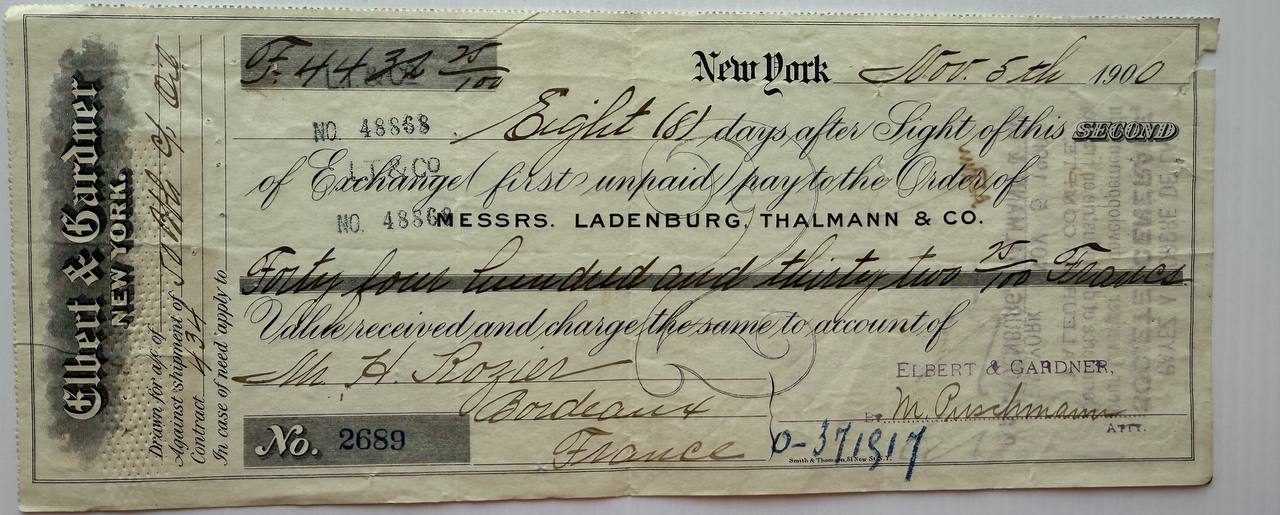 Elbert & Gardner
NEW YORK.
Drawn for a/c of
Against shipment of 50 Bbls C/ Oil
Contract 434
In case of need apply to
F. 4432 25/100
New York Nov. 5th 1900
NO. 48868
Eight (8) days after Sight of this SECOND
L.T. & CO
of Exchange (first unpaid) pay to the Order of
NO. 48868
MESSRS. LADENBURG, THALMANN & CO.
Forty four hundred and thirty two 25/100 Francs
Value received and charge the same to account of
Mr. H. Rozier
Bordeaux
France
ELBERT & GARDNER,
By M. Puschmann
ATTY.
No. 2689
0-371917
Smith & Thomson, 51 New St. N.Y.